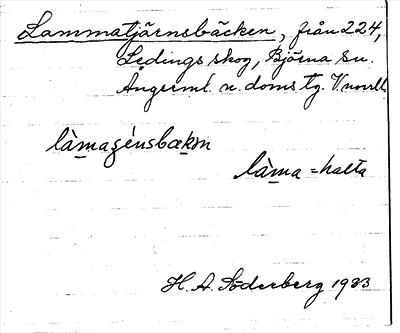 Lammatjärnsbäcken, från 224,
Ledings skog, Björna sn.
Ångerml. n. doms tg. V norrl.
làmaşénsbækɱ
làma = halta
H. A. Söderberg 1933